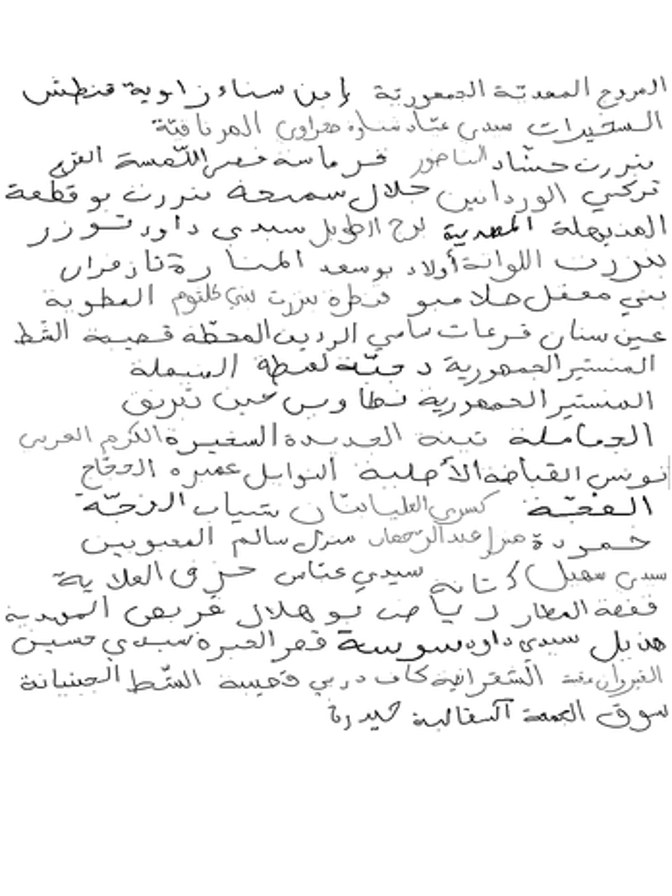 المروج المعديّة الجمهوريّة إبن سناء زاوية قنطش
السخيرات سيدي عبّاد شنارة صحراوي المرناقيّة
بنزرت حشّاد الناضور قرماسة قصر اللّمسة الفرج
تركي الوردانين جلال سميحة بنزرت بوقطعة
المنيهلة المصدرية برج الطويل سيدي داود توزر
بنزرت اللواتة أولاد بوسعد المنارة
بني معقل صلامبو قنطرة بنزرت سي كلثوم العطوية
عين سنان قرعات سامي الرديف المحطّة قصيبة الشط
المنستير الجمهورية دجبّة لمطة السيملة
المنستير الجمهورية نطاوس عين تبرنق
الجماملة تينة الجديدة السغيرة الكرم الغربي
تونس القباضة الأصلية النوايل عميرة الحجّاج
القفيّة كسرى العليا شباب الرنجيّة
خمودة منزل عبد الرحمان منزل سالم
سيدي سهيل كتانة سيدي عبّاس حزق العلاية
قفصة العطار رياض بوهلال غريس المهدية
هذيل سيدي داود سوسة قصر الحيرة سيدي حسين
القيروان الشقرانية كاف دربي قصيبة الشّط الجبنيانة
سوق الجمعة السقالبة حيدرة